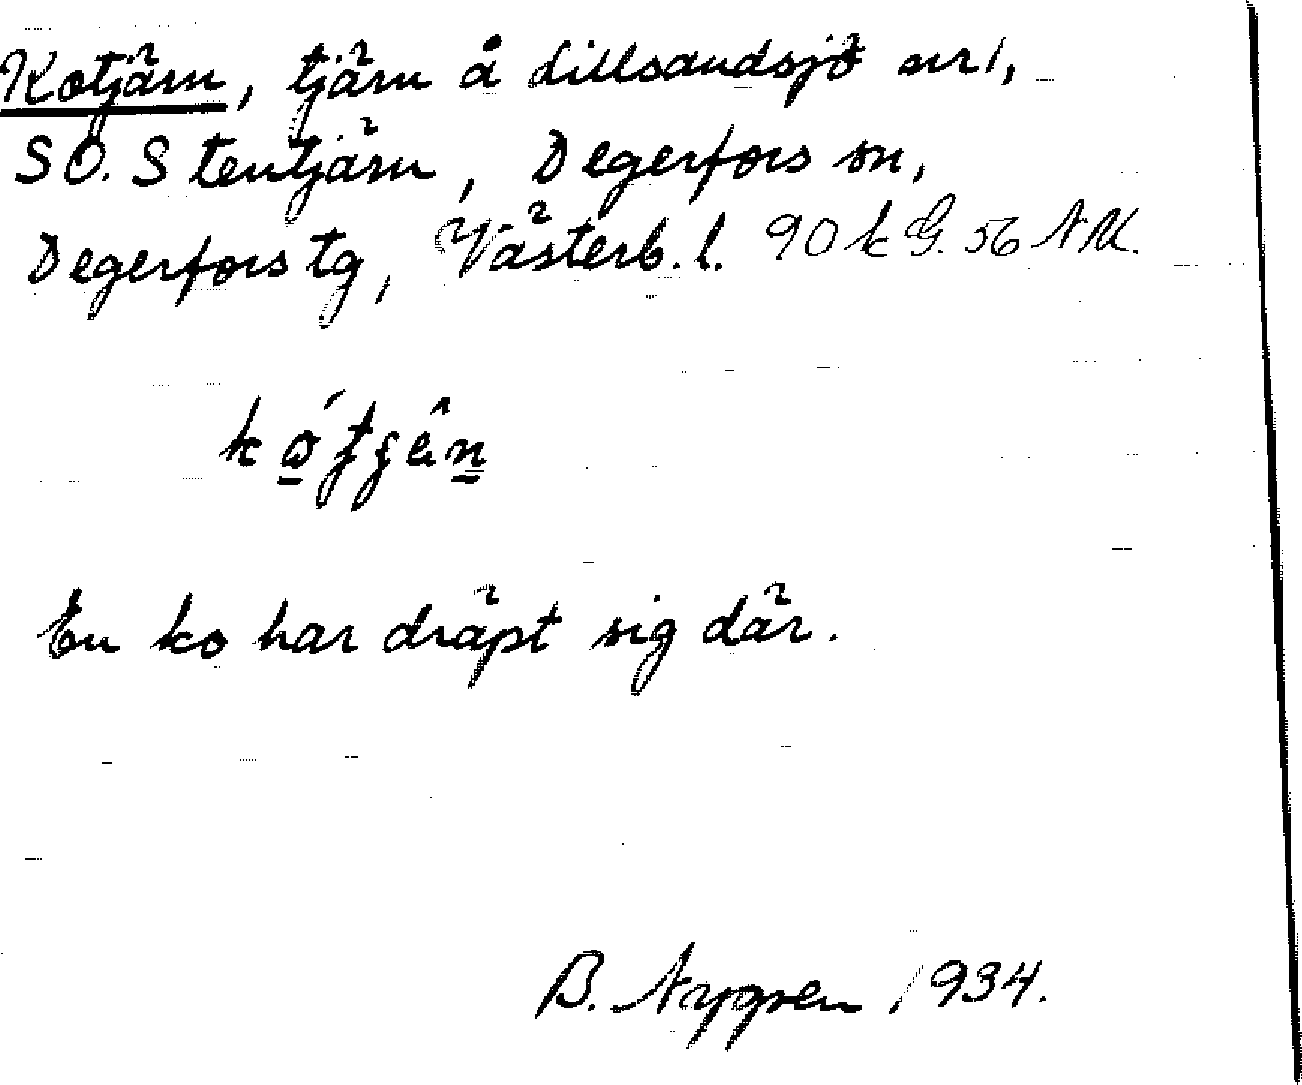 Kotjärn, tjärn å Lillsandsjö nr 1,
SO. Stentjärn, Degerfors sn,
Degerfors tg, Västerb. l. 90 k G. 56 N.M.
En ko har dräpt sig där.
B. Nygren 1934.